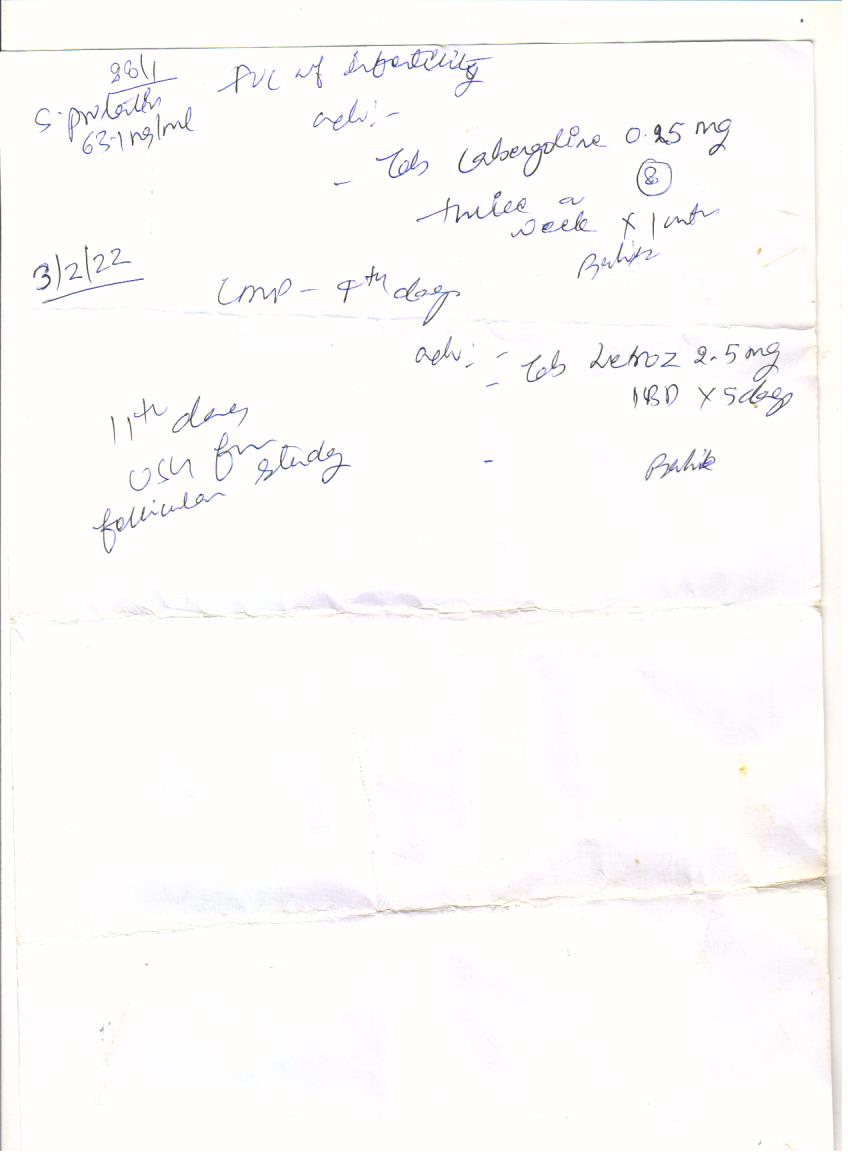 28/1
S. prolactin
63.1 ng/ml
F/U/C of Infertility
adv:-
- Tab Cabergoline 0.25 mg
8
twice a
week x 1 mth
3/2/22
LMP - 4th day
adv: - Tab Letroz 2.5 mg
-
1 BD x 5 days
11th day
USG for
follicular study
-